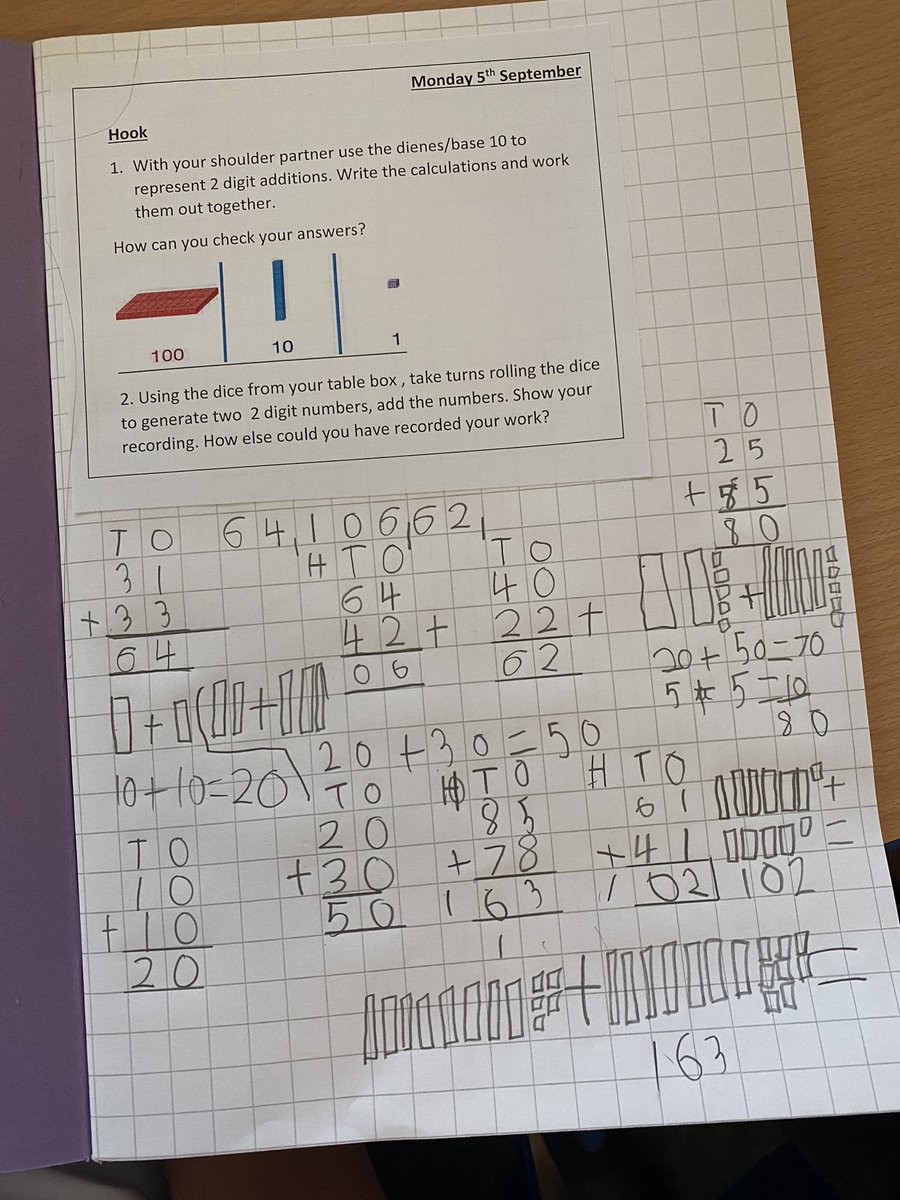 Monday 5th September
Hook
1. With your shoulder partner use the dienes/base 10 to
represent 2 digit additions. Write the calculations and work
them out together.
How can you check your answers?
100
10
1
2. Using the dice from your table box , take turns rolling the dice
to generate two 2 digit numbers, add the numbers. Show your
recording. How else could you have recorded your work?
T O
25
+ 55
80
64, 106, 62,
T O
31
+ 33
64
H T O
64
42 +
06
T O
40
22 +
62
+
20 + 50 = 70
5 + 5 = 10
80
+
+
10 + 10 = 20
20 + 30 = 50
T O
10
+ 10
20
T O
20
+ 30
50
H T O
85
+ 78
163
1
H T O
61
+ 41
102
+
=
102
+ =
163